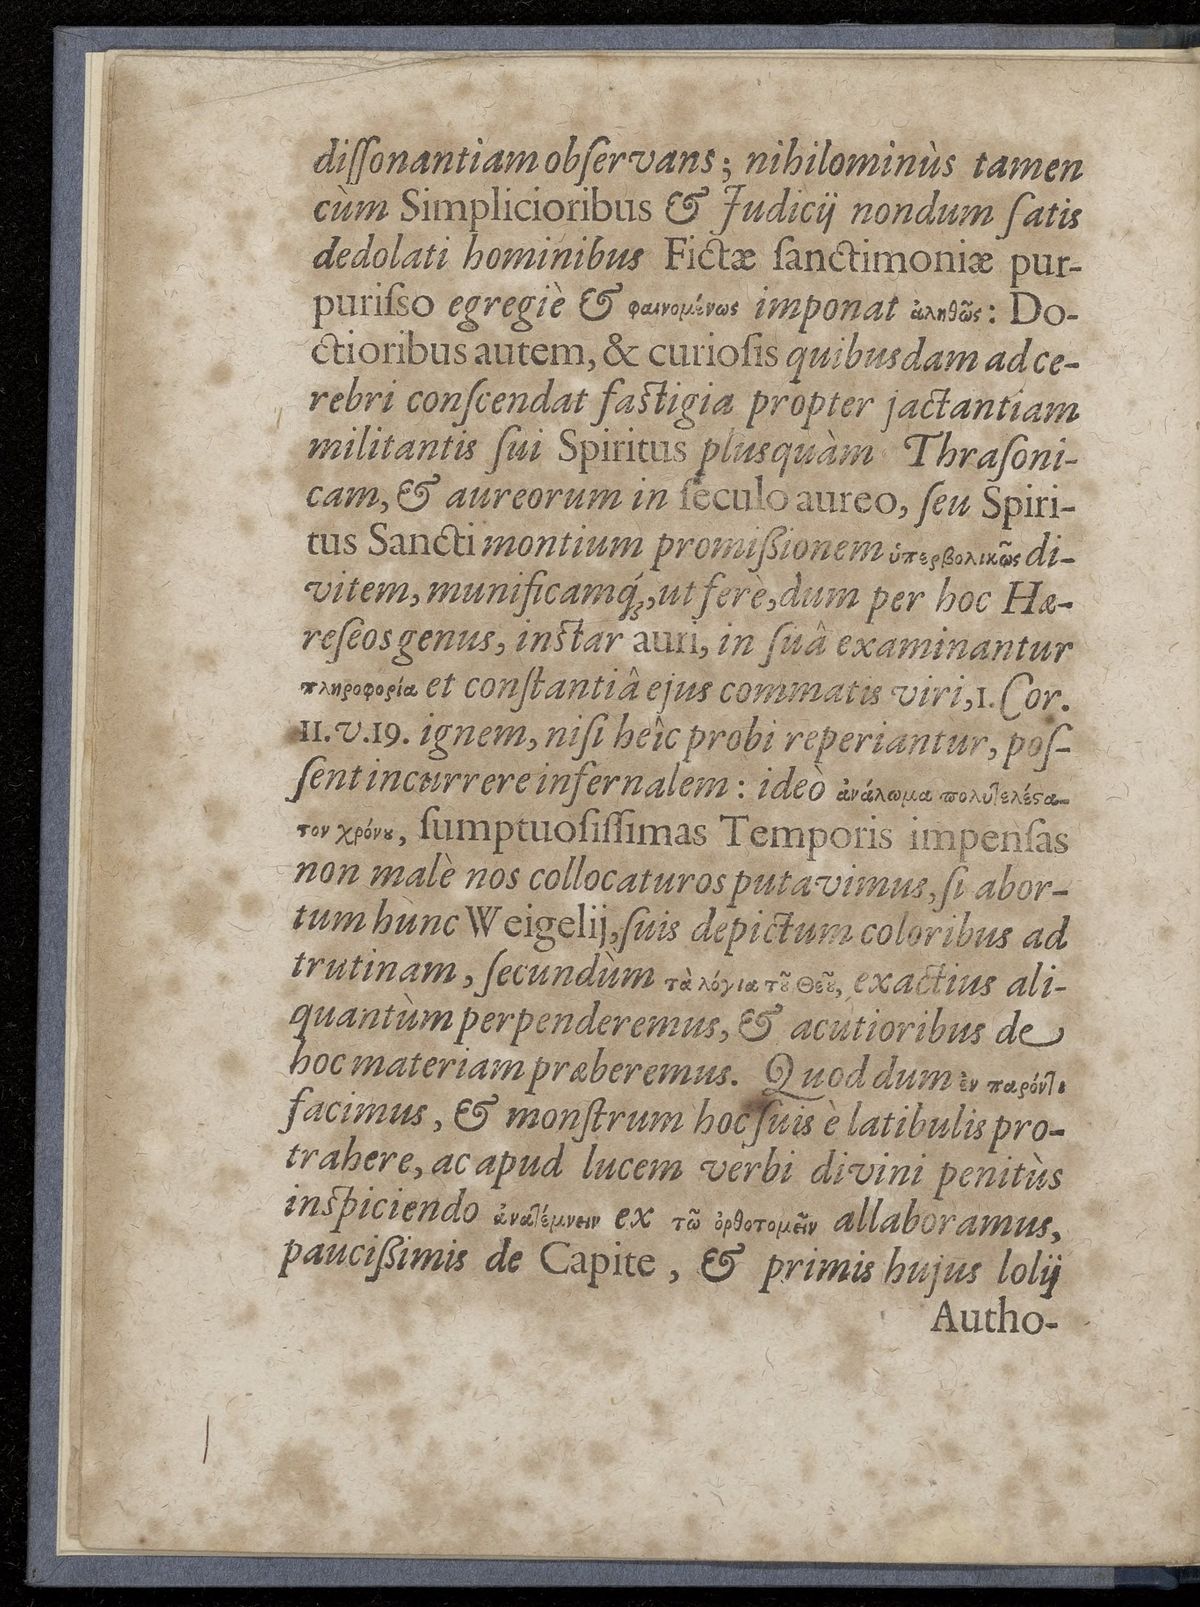 diſſonantiam obſervans; nihilominùs tamen
cùm Simplicioribus & Judicij nondum ſatis
dedolati hominibus Fictæ ſanctimoniæ pur-
puriſso egregiè & φαινομένως imponat ἀληθῶς: Do-
ctioribus autem, & curioſis quibusdam ad ce-
rebri conſcendat faſtigia propter jactantiam
militantis ſui Spiritus plusquàm Thraſoni-
cam, & aureorum in ſeculo aureo, ſeu Spiri-
tus Sancti montium promiſsionem ὑπερβολικῶς di-
vitem, munificamq́;, ut ferè, dum per hoc Hæ-
reſeos genus, inſtar auri, in ſuâ examinantur
πληροφορία et conſtantiâ ejus commatis viri, 1. Cor.
11. v. 19. ignem, niſi heîc probi reperiantur, poſ-
ſent incurrere infernalem: ideò ἀνάλωμα πολυτελέϛα-
τον χρόνȣ, ſumptuoſiſſimas Temporis impenſas
non malè nos collocaturos putavimus, ſi abor-
tum hùnc Weigelij, ſuis depictum coloribus ad
trutinam, ſecundùm τὰ λόγια τȣ͂ Θεȣ͂, exactius ali-
quantùm perpenderemus, & acutioribus de
hoc materiam præberemus. Quod dum ἐν παρόντι
facimus, & monſtrum hoc ſuis è latibulis pro-
trahere, ac apud lucem verbi divini penitùs
inſpiciendo ἀνατέμνειν ex τῶ ὀρθοτομεῖν allaboramus,
pauciſsimis de Capite, & primis hujus lolij
Autho-